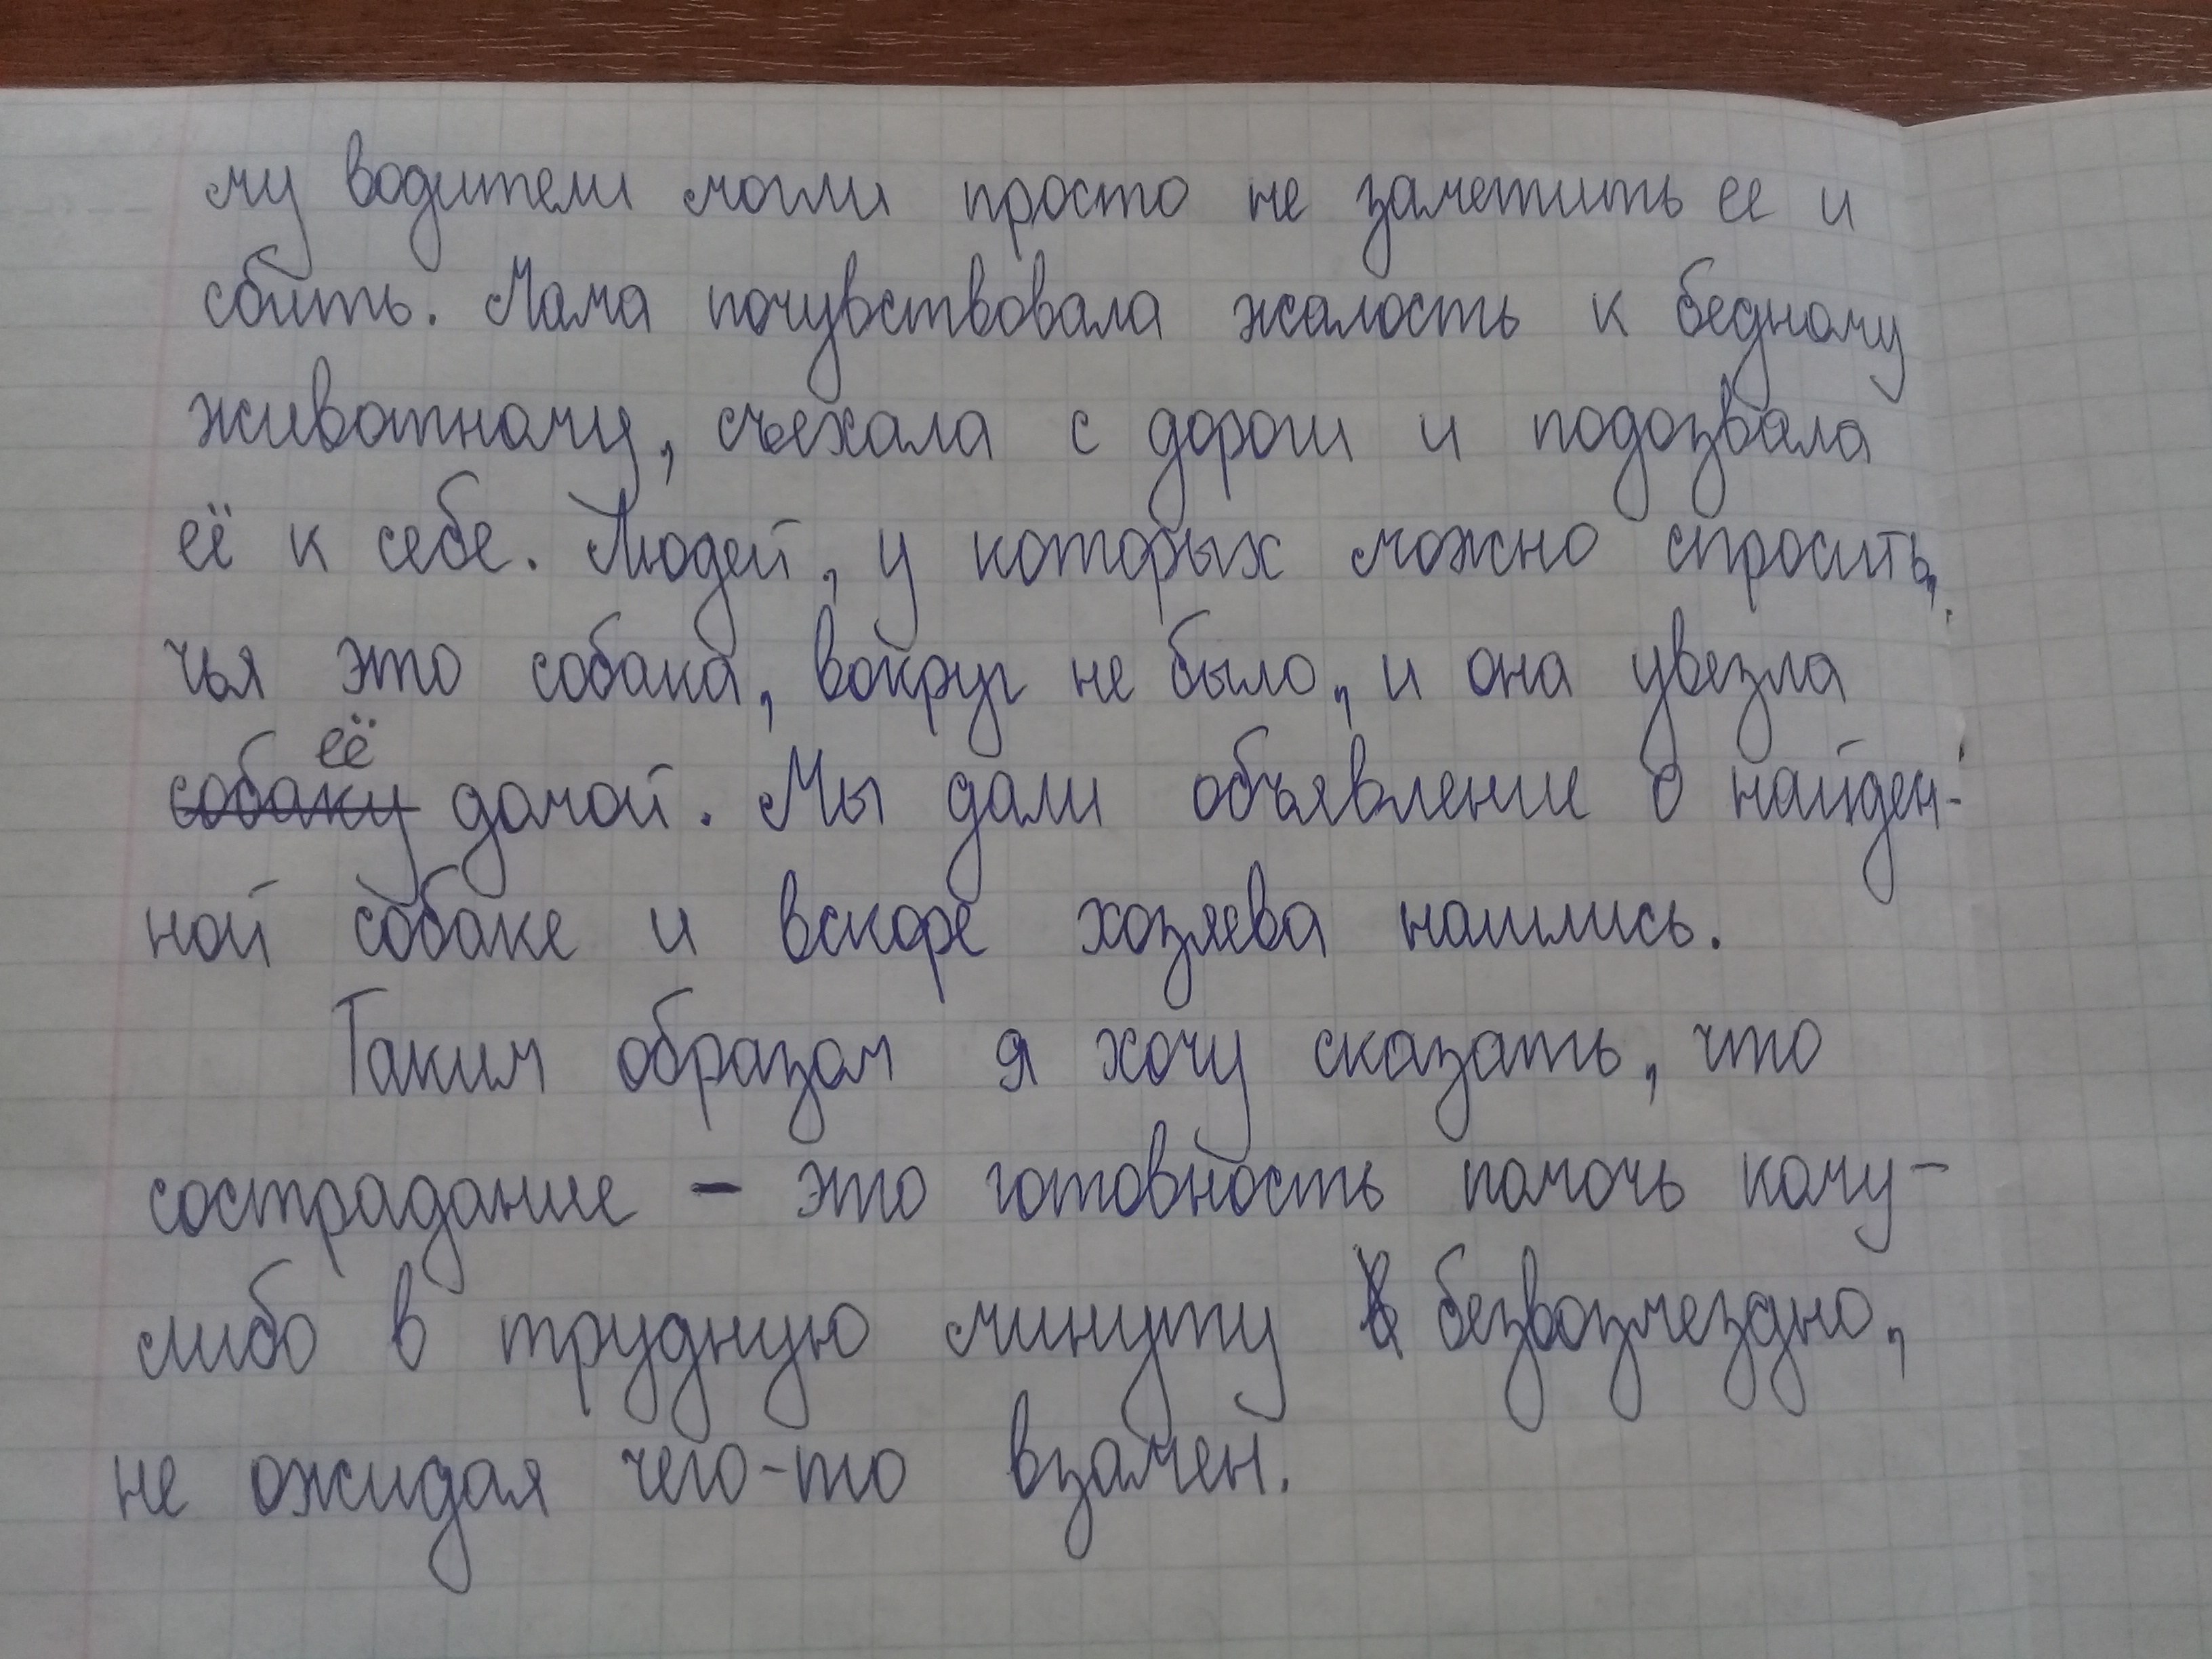 му водители могли просто не заметить ее и
сбить. Мама почувствовала жалость к бедному
животному, съехала с дороги и подозвала
её к себе. Людей, у которых можно спросить,
чья это собака, вокруг не было, и она увезла
её
собаку домой. Мы дали объявление о найден-
ной собаке и вскоре хозяева нашлись.
Таким образом я хочу сказать, что
сострадание – это готовность помочь кому-
либо в трудную минуту безвозмездно,
не ожидая чего-то взамен.